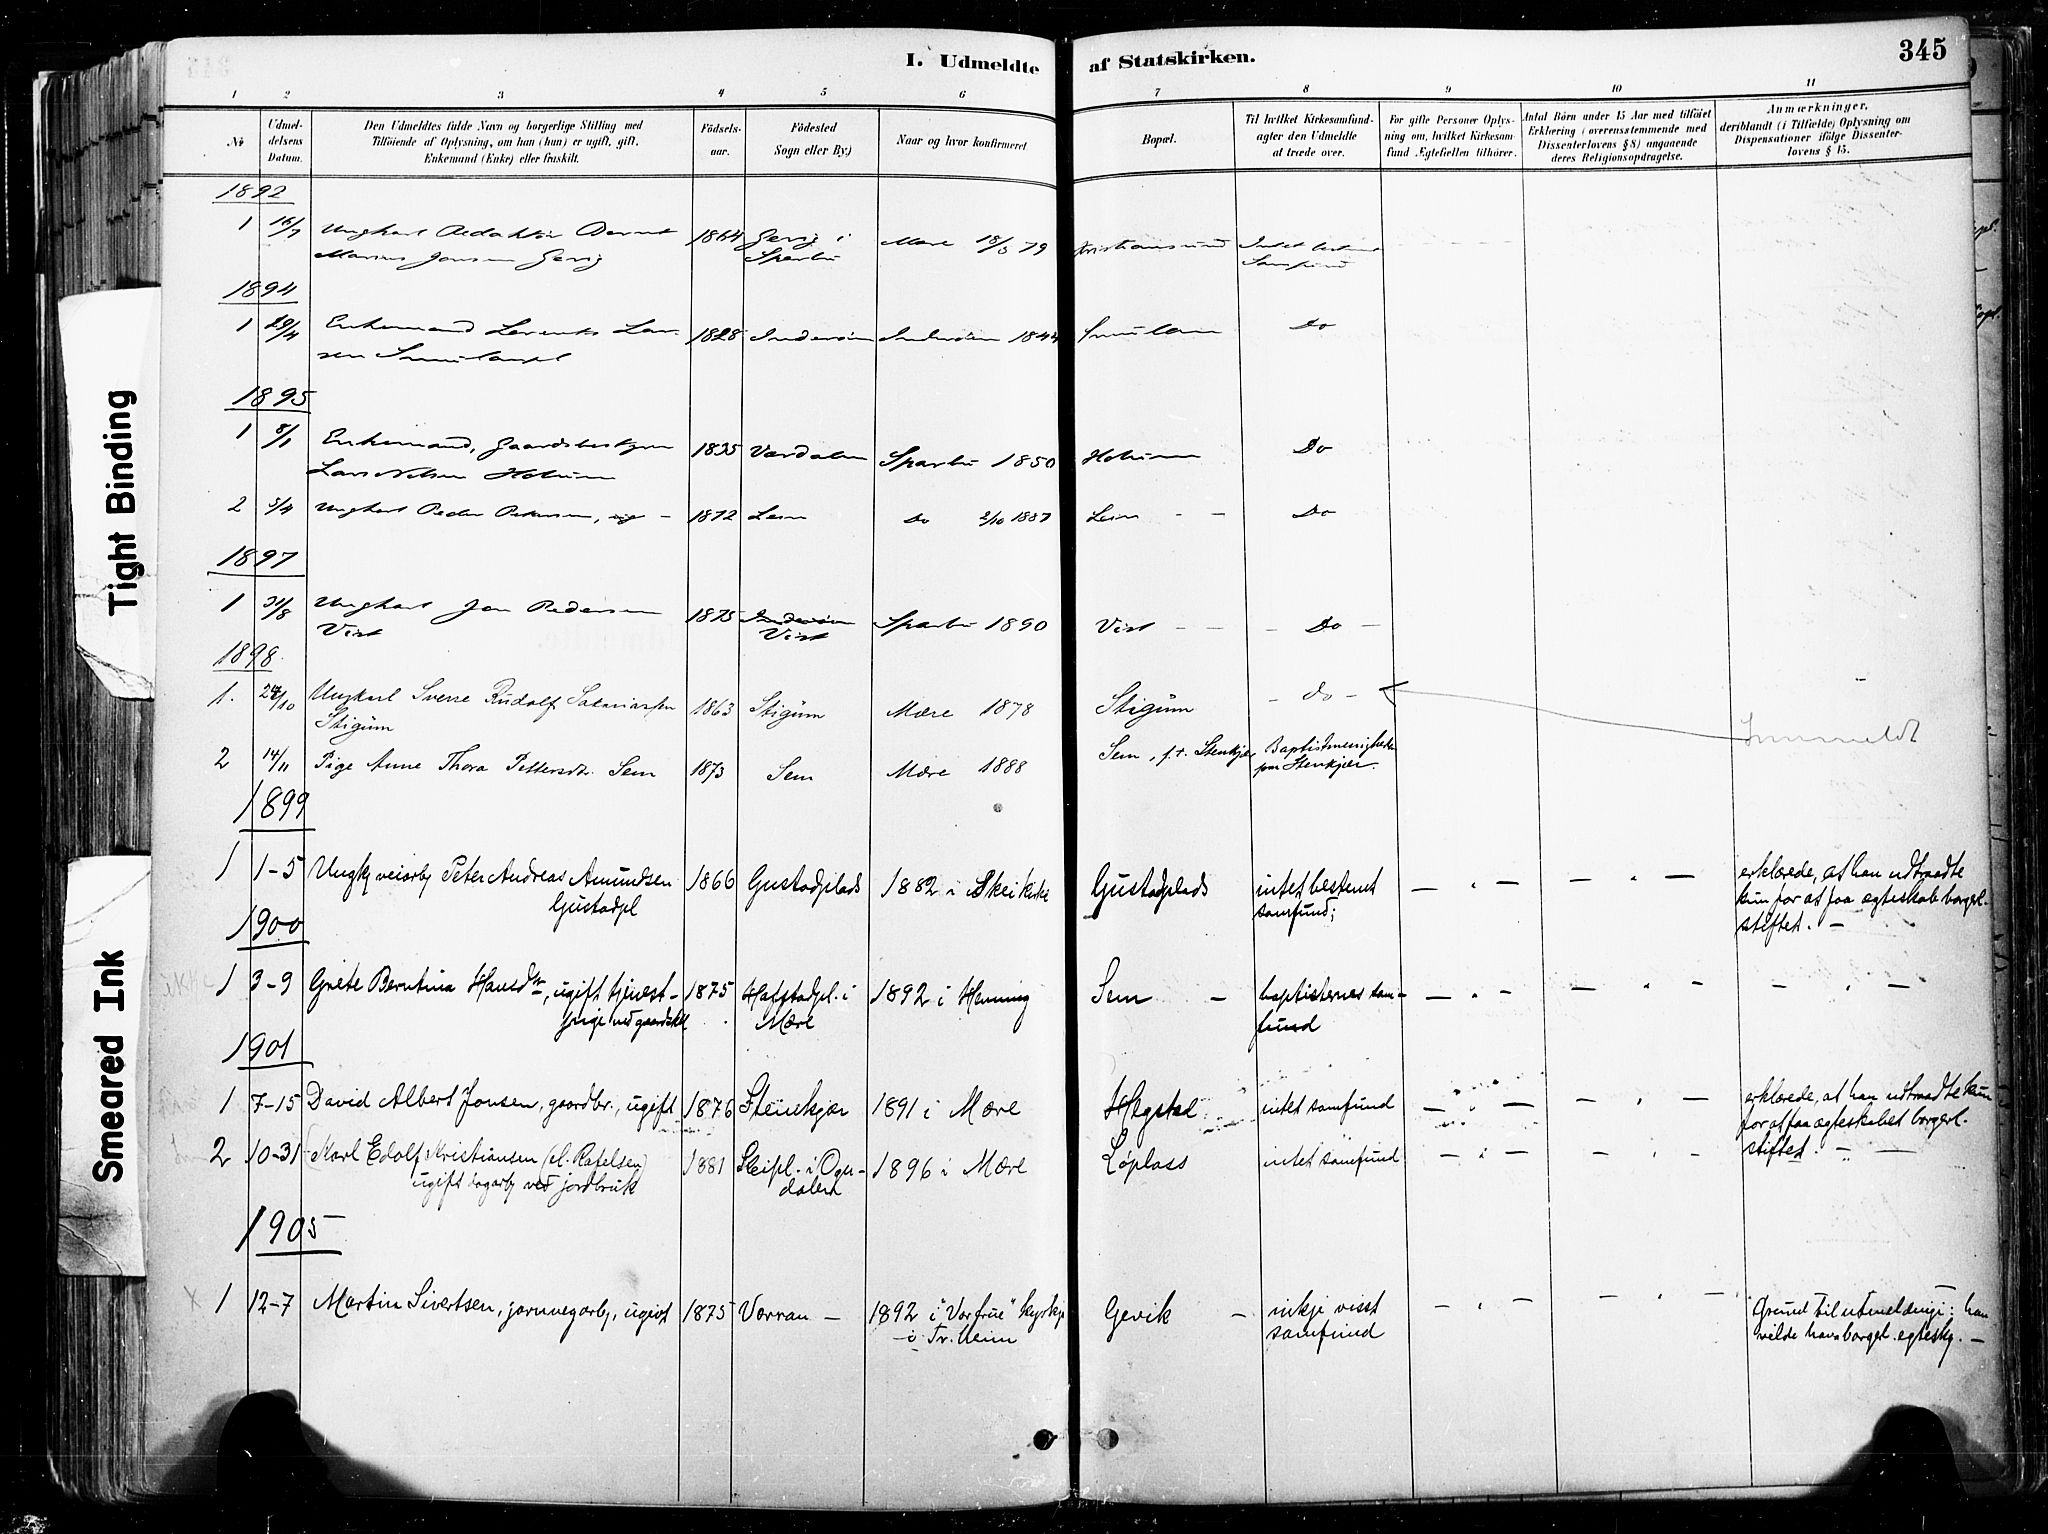 I. Udmeldte af Statskirken.
345
1 2 3 4 5 6 7 8 9 10 11
No
Udmeldelsens Datum.
Den Udmeldtes fulde Navn og borgerlige Stilling med
Tilføiende af Oplysning, om han (hun) er ugift, gift,
Enkemand (Enke) eller fraskilt.
Fødselsaar.
Fødested
Sogn eller By.)
Naar og hvor konfirmeret
Bopæl.
Til hvilket Kirkesamfund-
agter den Udmeldte
at træde over.
For gifte Personer Oplys-
ning om, hvilket Kirkesam-
fund Ægtefællen tilhører.
Antal Børn under 15 Aar med tilføiet
Erklæring (overensstemmende med
Dissenterlovens § 8) angaaende
deres Religionsopdragelse.
Anmærkninger,
deriblandt (i Tilfælde) Oplysning om
Dispensationer ifølge Dissenter-
lovens § 15.
1892
1 16/7 Ungkarl Redaktør Bernt 1864 Gersj i Mære 18/5 79 Kristiansund Intet bestemt
Marius Jansen Gersj Sparbu Samfund
1894
1 29/4 Enkemand Lorents Lar- 1828 Inderøen Inderøen 1844 Do
sen
1895
1 8/1 Enkemand, Gaardsbestyrer 1835 Værdalen Sparbu 1850 Do
Lars Nelsen
2 5/4 Ungkarl Peder Petersen, 1872 Lein Do 2/10 1887 Lein - - Do
1897
1 31/8 Ungkarl Jon Pedersen 1875 Inderøen Sparbu 1890 Vist - - - Do -
Vist Vist
1898.
1. 24/10 Ungkarl Sverre Rudolf Sakariassen 1863 Stigum Mære 1878 Stigum - do - Innmeldt
Stigum
2 14/11 Pige Anne Thora Pettersdtr. Sem 1873 Sem Mære 1888 Sem, f.t. Stenkjær Baptistmenigheden
paa Stenkjær.
1899
1 1-5 Ungk veiarb Peter Andreas Amundsen 1866 Gustadplads 1882 i Skei kirke Gustadplads intet bestemt — " — — " — erklærede, at han udtraadte
Gustadpl samfund; kun for at faa ægteskab borgerl.
stiftet. —
1900
1 3-9 Grete Berntina Hansdtr, ugift tjenest- 1875 Hafstadpl. i 1892 i Henning Sem — baptisternes sam- — " — — " — — " —
pige ved gaardsbr Mære fund
1901
1 7-15 David Albert Jonsen, gaardbr., ugift 1876 Stenkjær 1891 i Mære Hegstad intet samfund — " — — " — erklærede, at han udtraadte kun
for at faa ægteskabet borgerl.
stiftet. —
2 10-31 Karl Edolf Kristiansen (el. Rafelsen) 1881 Skeipl. i Ogn- 1896 i Mære Løplass intet samfund — " — — " — — " —
ugift dagarb ved jordbruk dalen
1905
x 1 12-7 Martin Sivertsen, jarnvegarb, ugivt 1875 Verran — 1892 i "Vor frue" kyrkje Gevik — inkje visst — " — — " — Grund til utmeldingi: han
i Tr.heim samfund vilde hava borgerl. egteskp. —
Tight Binding
Smeared Ink